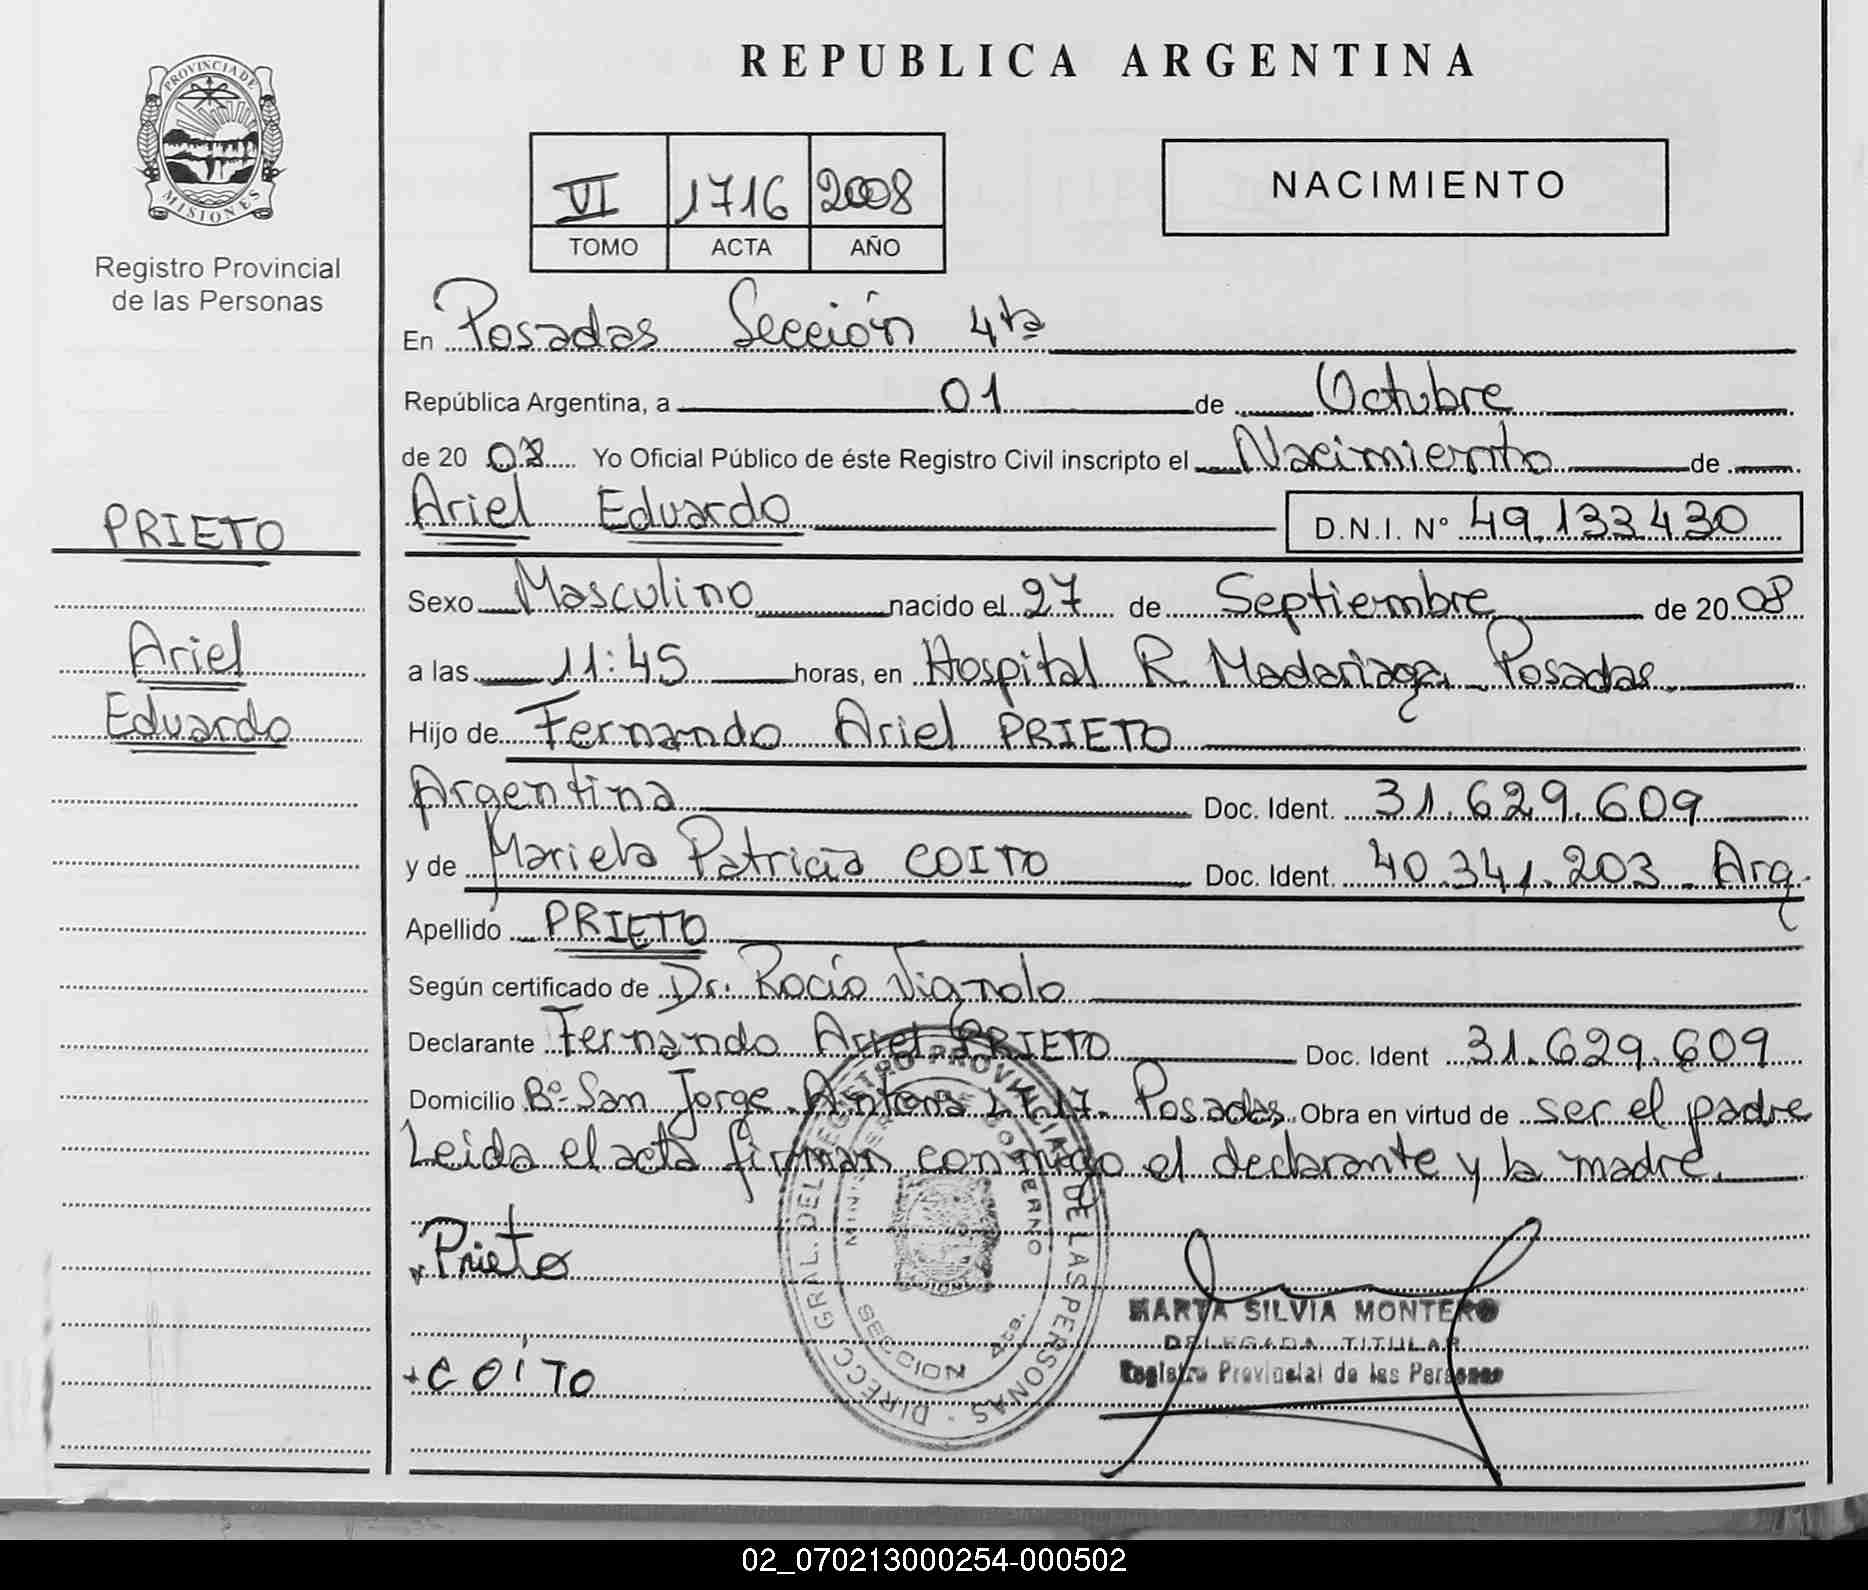 PROVINCIA DE
MISIONES
Registro Provincial
de las Personas
PRIETO
Ariel
Eduardo
REPUBLICA ARGENTINA
VI 1716 2008
TOMO ACTA AÑO
NACIMIENTO
En Posadas Sección 4ta
República Argentina, a 01 de Octubre
de 20 08 Yo Oficial Público de éste Registro Civil inscripto el Nacimiento de
Ariel Eduardo D.N.I. N° 49.133.430
Sexo Masculino nacido el 27 de Septiembre de 20 08
a las 11:45 horas, en Hospital R. Madariaga - Posadas.
Hijo de Fernando Ariel PRIETO
Argentina Doc. Ident. 31.629.609
y de Mariela Patricia COITO Doc. Ident. 40.341.203 - Arg.
Apellido PRIETO
Según certificado de Dr. Rocío Vignolo
Declarante Fernando Ariel PRIETO Doc. Ident 31.629.609
Domicilio Bº San Jorge. 17. Posadas Obra en virtud de ser el padre
Leida el acta firman conmigo el declarante y la madre.
Prieto
COITO
DIRECC. GRAL. DEL REGISTRO PROVINCIAL DE LAS PERSONAS
GOBIERNO
SECCION 4ta.
MARTA SILVIA MONTERO
DELEGADA TITULAR
Registro Provincial de las Personas
02_070213000254-000502